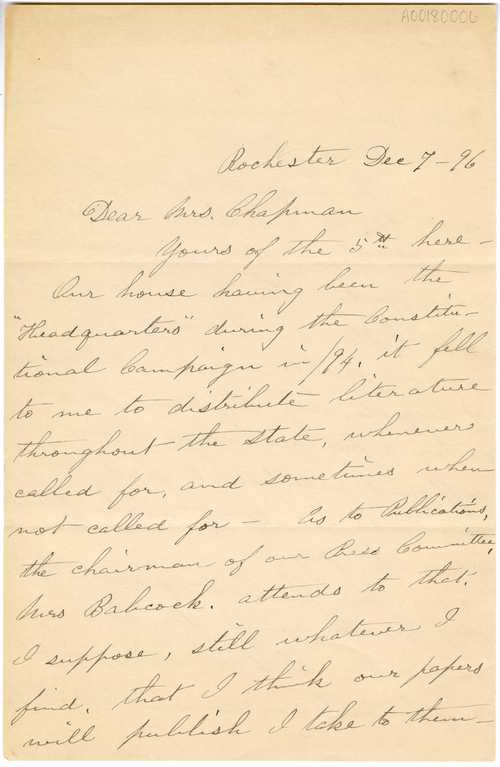 A00180006
Rochester Dec 7-96
Dear Mrs. Chapman
Yours of the 5th here -
Our house having been the
"Headquarters" during the Constitu-
tional Campaign in /94, it fell
to me to distribute literature
throughout the state, whenever
called for, and sometimes when
not called for - As to Publications,
the chairman of our Press Committee,
Mrs Babcock. attends to that.
I suppose, still whatever I
find, that I think our papers
will publish I take to them -